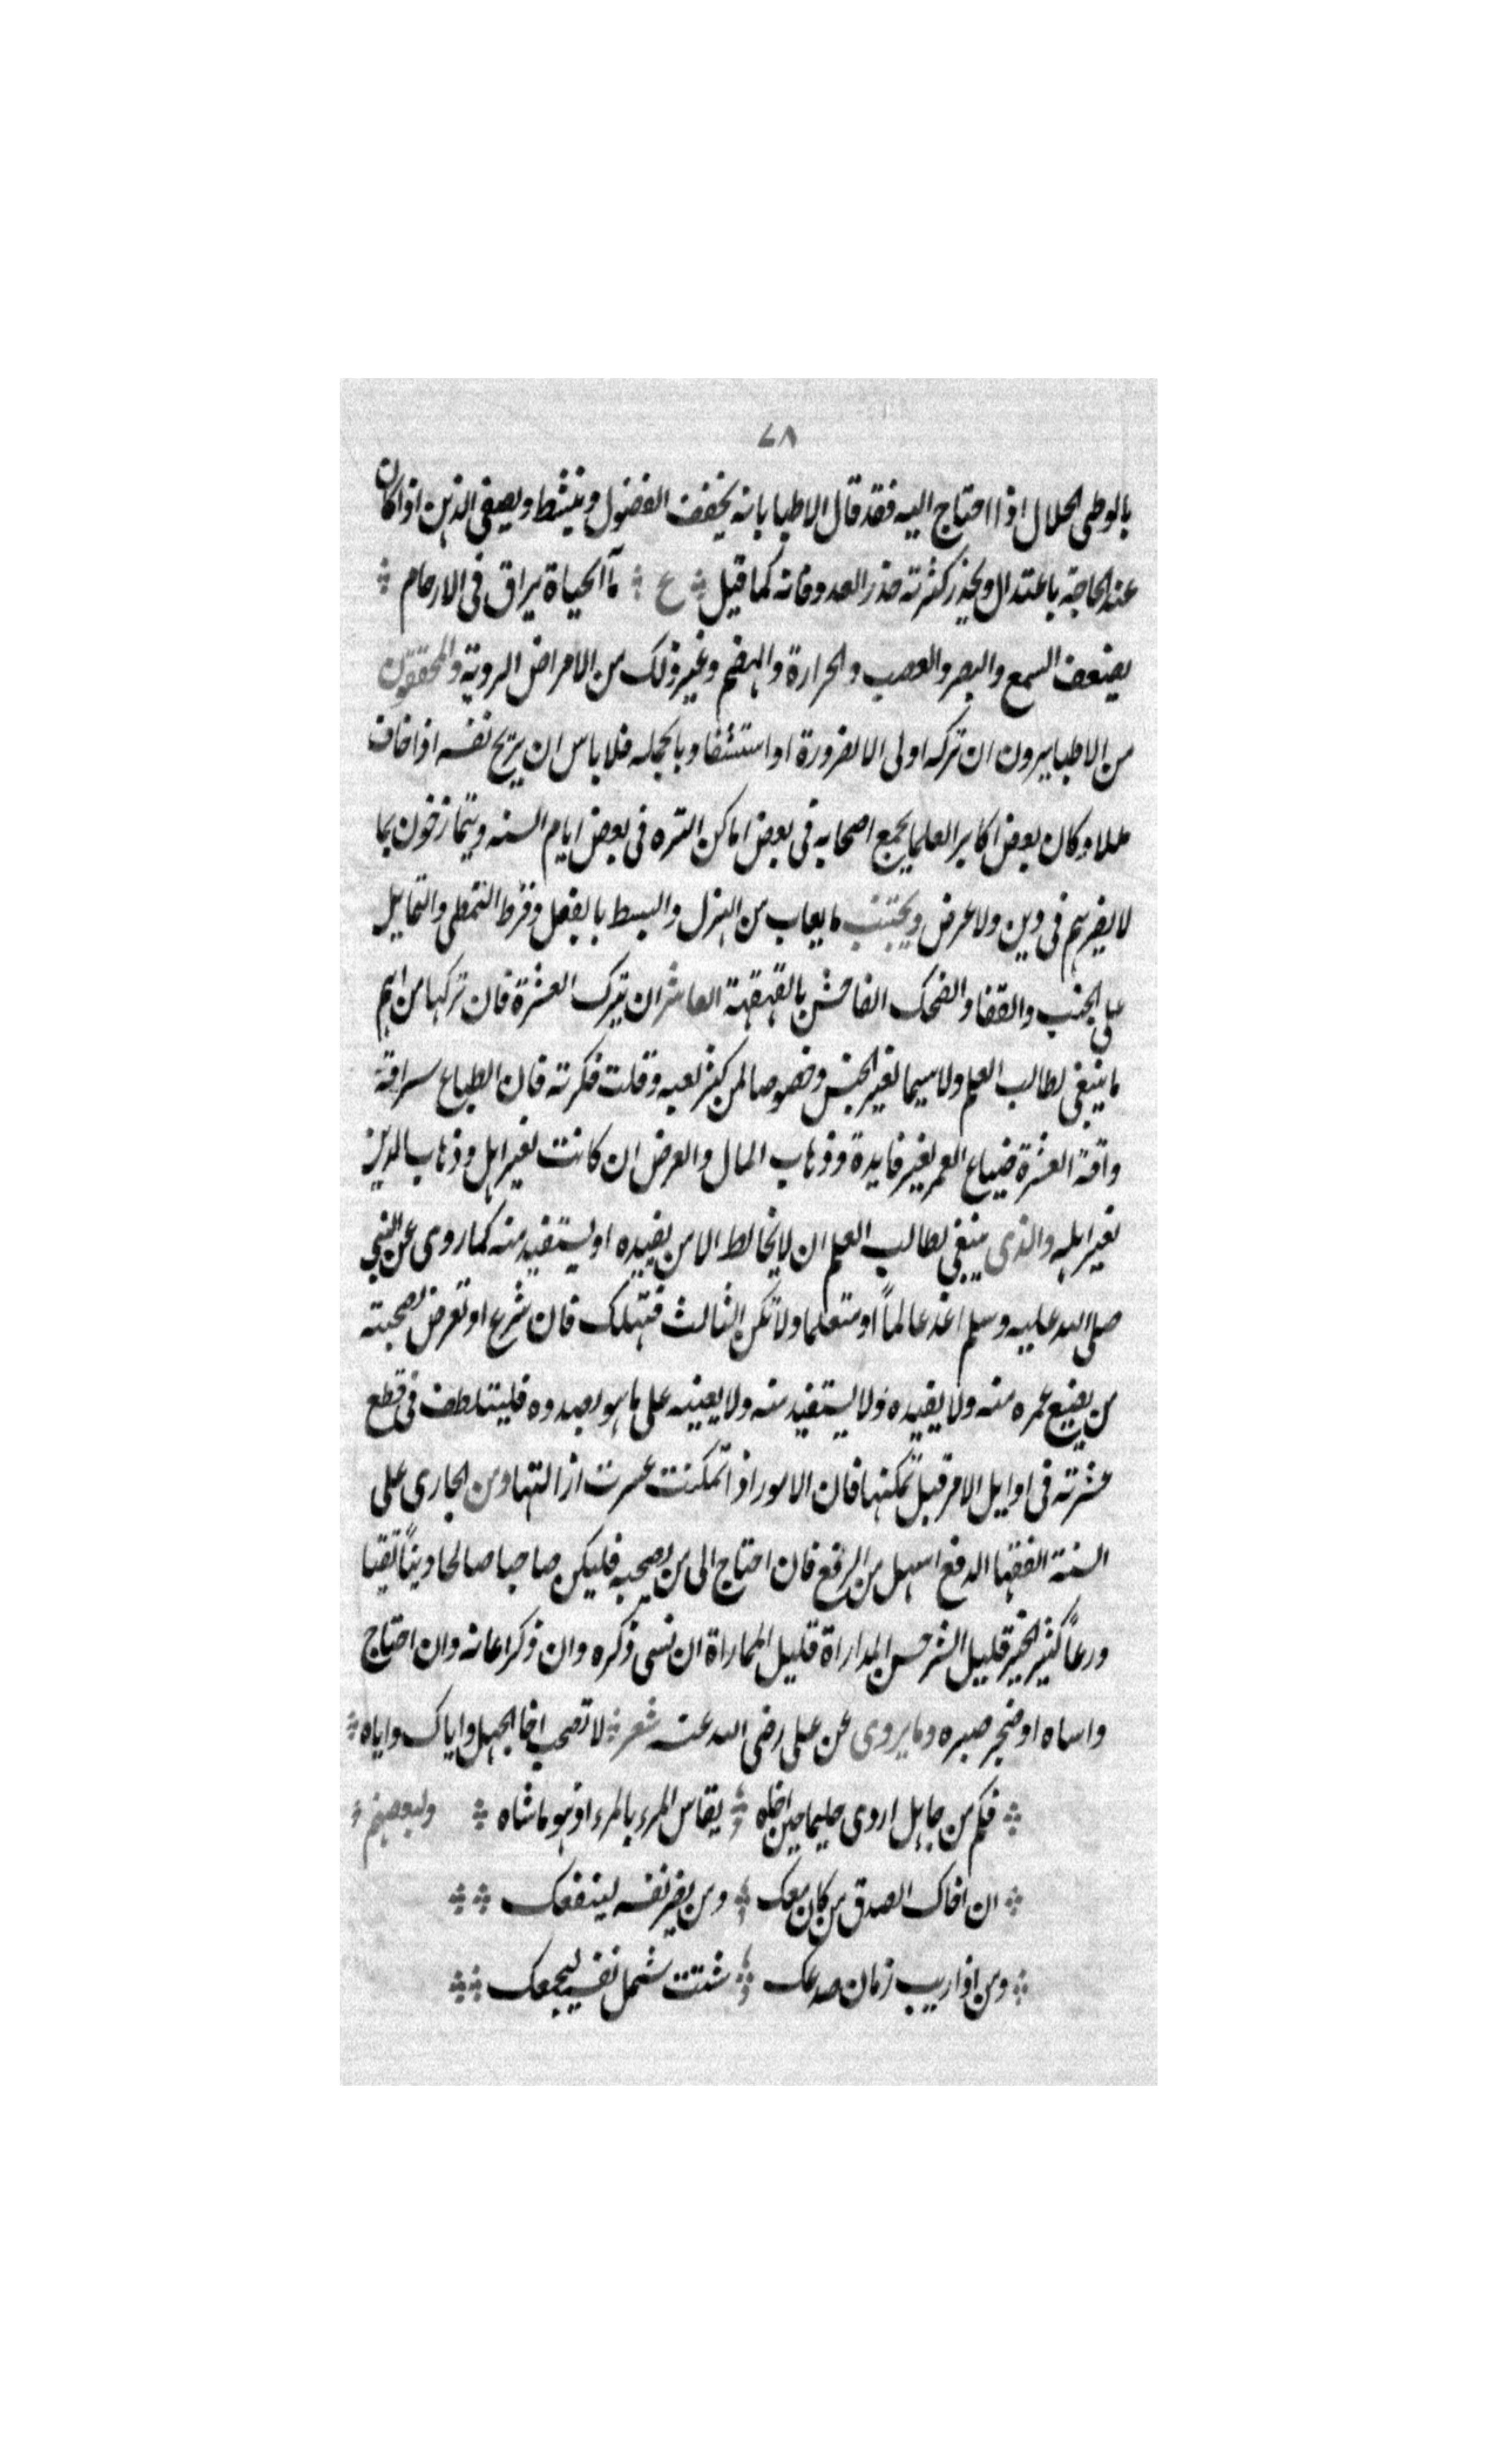 ٧٨
بالوطى الحلال اذا احتاج اليه فقد قال الاطبا بانه يخفف الفضول وينشط ويصفى الذهن اذا كان
عند الحاجة باعتدال ويحذر كثرته حذر العدو فانه كما قيل ع ماٱ الحياة يراق فى الارحام
يضعف السمع والبصر والعصب والحرارة والهضم وغير ذلك من الامراض الردية والمحققون
من الاطبا يرون ان تركه اولى الا لضرورة او استشفا وبالجمله فلا باس ان يريح نفسه اذا خاف
مللا وكان بعض اكابر العلما يجمع اصحابه فى بعض اماكن التنزه فى بعض ايام السنه ويتمازحون بما
لا يضرهم فى دين ولا عرض ويجتنب ما يعاب من الهزل والبسط بالفعل وفرط التمطى والتمايل
على الجنب والقفا والضحك الفاحش بالقهقهة العاشر ان يترك العشرة فان تركها من اهم
ما ينبغى لطالب العلم ولا سيما لغير الجنس وخصوصا لمن كثر لعبه وقلت فكرته فان الطباع سراقة
وافة العشرة ضياع العمر بغير فايدة وذهاب المال والعرض ان كانت لغير اهل وذهاب الدين
لغير اهله والذى ينبغى لطالب العلم ان لا يخالط الا من يفيده او يستفيد منه كما روى عن النبي
صلى الله عليه وسلم اغد عالماً او متعلما ولا تكن الثالث فتهلك فان شرع او تعرض لصحبته
من يضيع عمره منه ولا يفيده ولا يستفيد منه ولا يعينه على ما هو بصدده فليتلطف فى قطع
عشرته فى اوايل الامر قبل تمكنها فان الامور اذا تمكنت عسرت ازالتها ومن الجارى على
السنة الفقها الدفع اسهل من الرفع فان احتاج الى من يصحبه فليكن صاحبا صالحا ديناً تقيا
ورعاً كثير الخير قليل الشر حسن المداراة قليل المماراة ان نسى ذكره وان ذكر اعانه وان احتاج
واساه او ضجر صبره وما يروى عن على رضى الله عنه شعر لا تصحب اخا الجهل واياك واياه
فكم من جاهل اردى حليما حين اخاه يقاس المرء بالمرء اذ هو ماشاه ولبعضهم
ان اخاك الصدق من كان معك ومن يضر نفسه لينفعك
ومن اذا ريب زمان صدعك شتت شمل نفسه ليجمعك